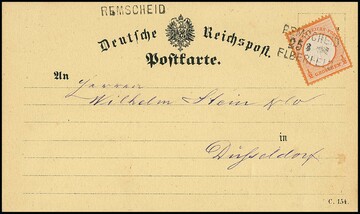 REMSCHEID
Deutsche Reichspost.
Postkarte.
An
Herren
Wilhelm Stein & Co
in
Düsseldorf
C. 154.